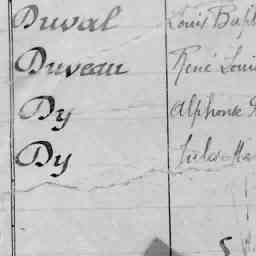 Duval Louis Bapt
Duveau René Loui
Dy Alphonse
Dy Jules Ma